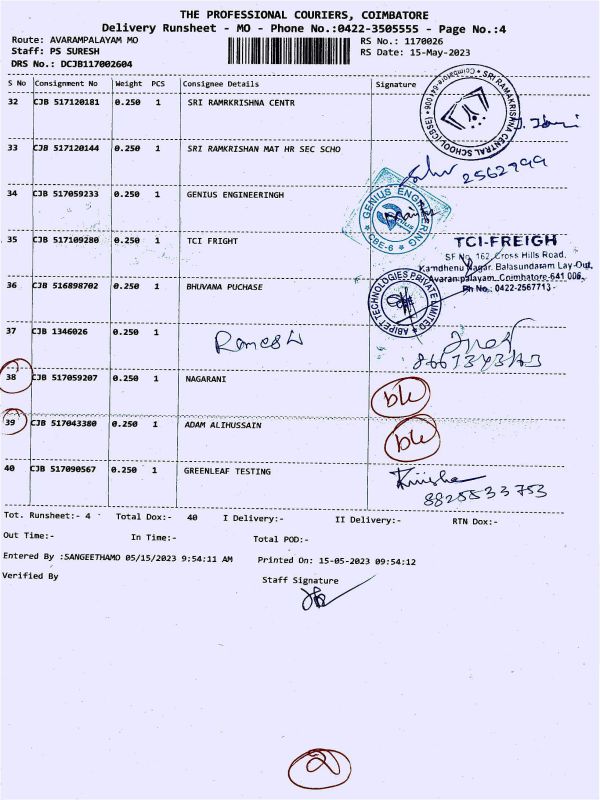 THE PROFESSIONAL COURIERS, COIMBATORE
Delivery Runsheet - MO - Phone No.:0422-3505555 - Page No.:4
Route: AVARAMPALAYAM MO
RS No.: 1170026
Staff: PS SURESH
RS Date: 15-May-2023
DRS No.: DCJB117002604
S No Consignment No Weight PCS Consignee Details Signature
32 CJB 517120181 0.250 1 SRI RAMRKRISHNA CENTR
SRI RAMAKRISHNA CENTRAL SCHOOL (CBSE)
33 CJB 517120144 0.250 1 SRI RAMKRISHAN MAT HR SEC SCHO
2562999
34 CJB 517059233 0.250 1 GENIUS ENGINEERINGH
GENIUS ENGINEERING
CBE-6
35 CJB 517109280 0.250 1 TCI FRIGHT
TCI-FREIGH
SF No. 162, Cross Hills Road,
Kamdhenu Nagar, Balasundaram Lay-Out,
Avarampalayam, Coimbatore-641 006.
Ph No.: 0422-2567713
36 CJB 516898702 0.250 1 BHUVANA PUCHASE
TECHNOLOGIES PRIVATE LIMITED
37 CJB 1346026 0.250 1 Ramesh
38 CJB 517059207 0.250 1 NAGARANI
39 CJB 517043380 0.250 1 ADAM ALIHUSSAIN
40 CJB 517090567 0.250 1 GREENLEAF TESTING
8825833753
Tot. Runsheet:- 4 Total Dox:- 40 I Delivery:- II Delivery:- RTN Dox:-
Out Time:- In Time:- Total POD:-
Entered By :SANGEETHAMO 05/15/2023 9:54:11 AM Printed On: 15-05-2023 09:54:12
Verified By Staff Signature
2